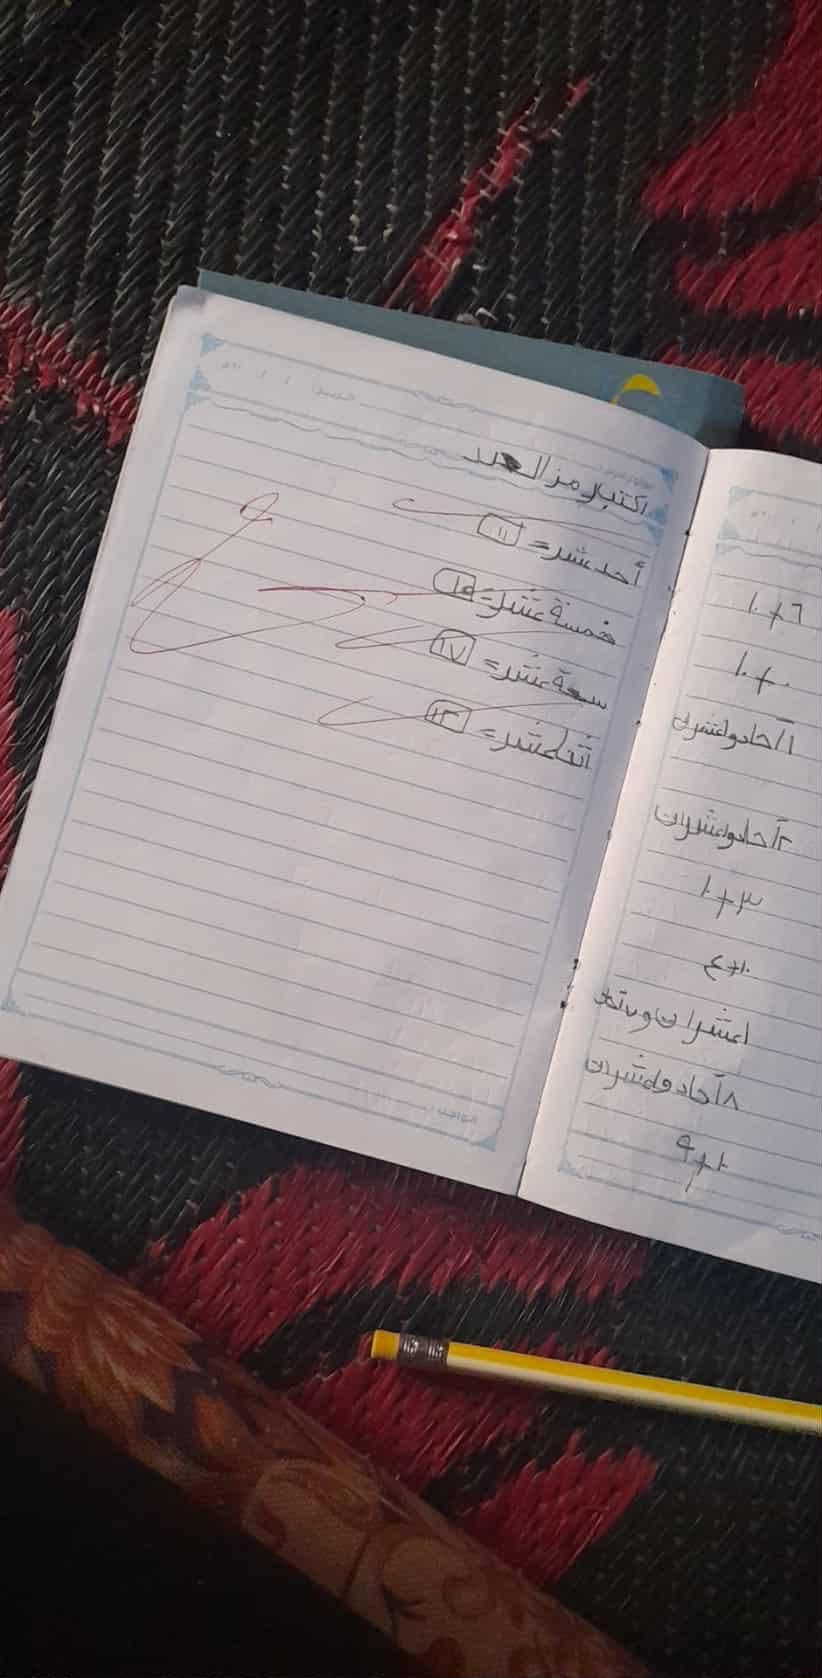 اكتب رمز العدد
أحد عشر = ١١
خمسة عشر = ١٥
سبعة عشر = ١٧
أثنا عشر = ١٢
٦ + ١٠
٠ + ١٠
١ آحاد و ١ عشرات
٢ آحاد و ١ عشرات
٣ + ١٠
١٠ + ٤
١ عشرات و
٨ آحاد و ١ عشرات
١٠ + ٩